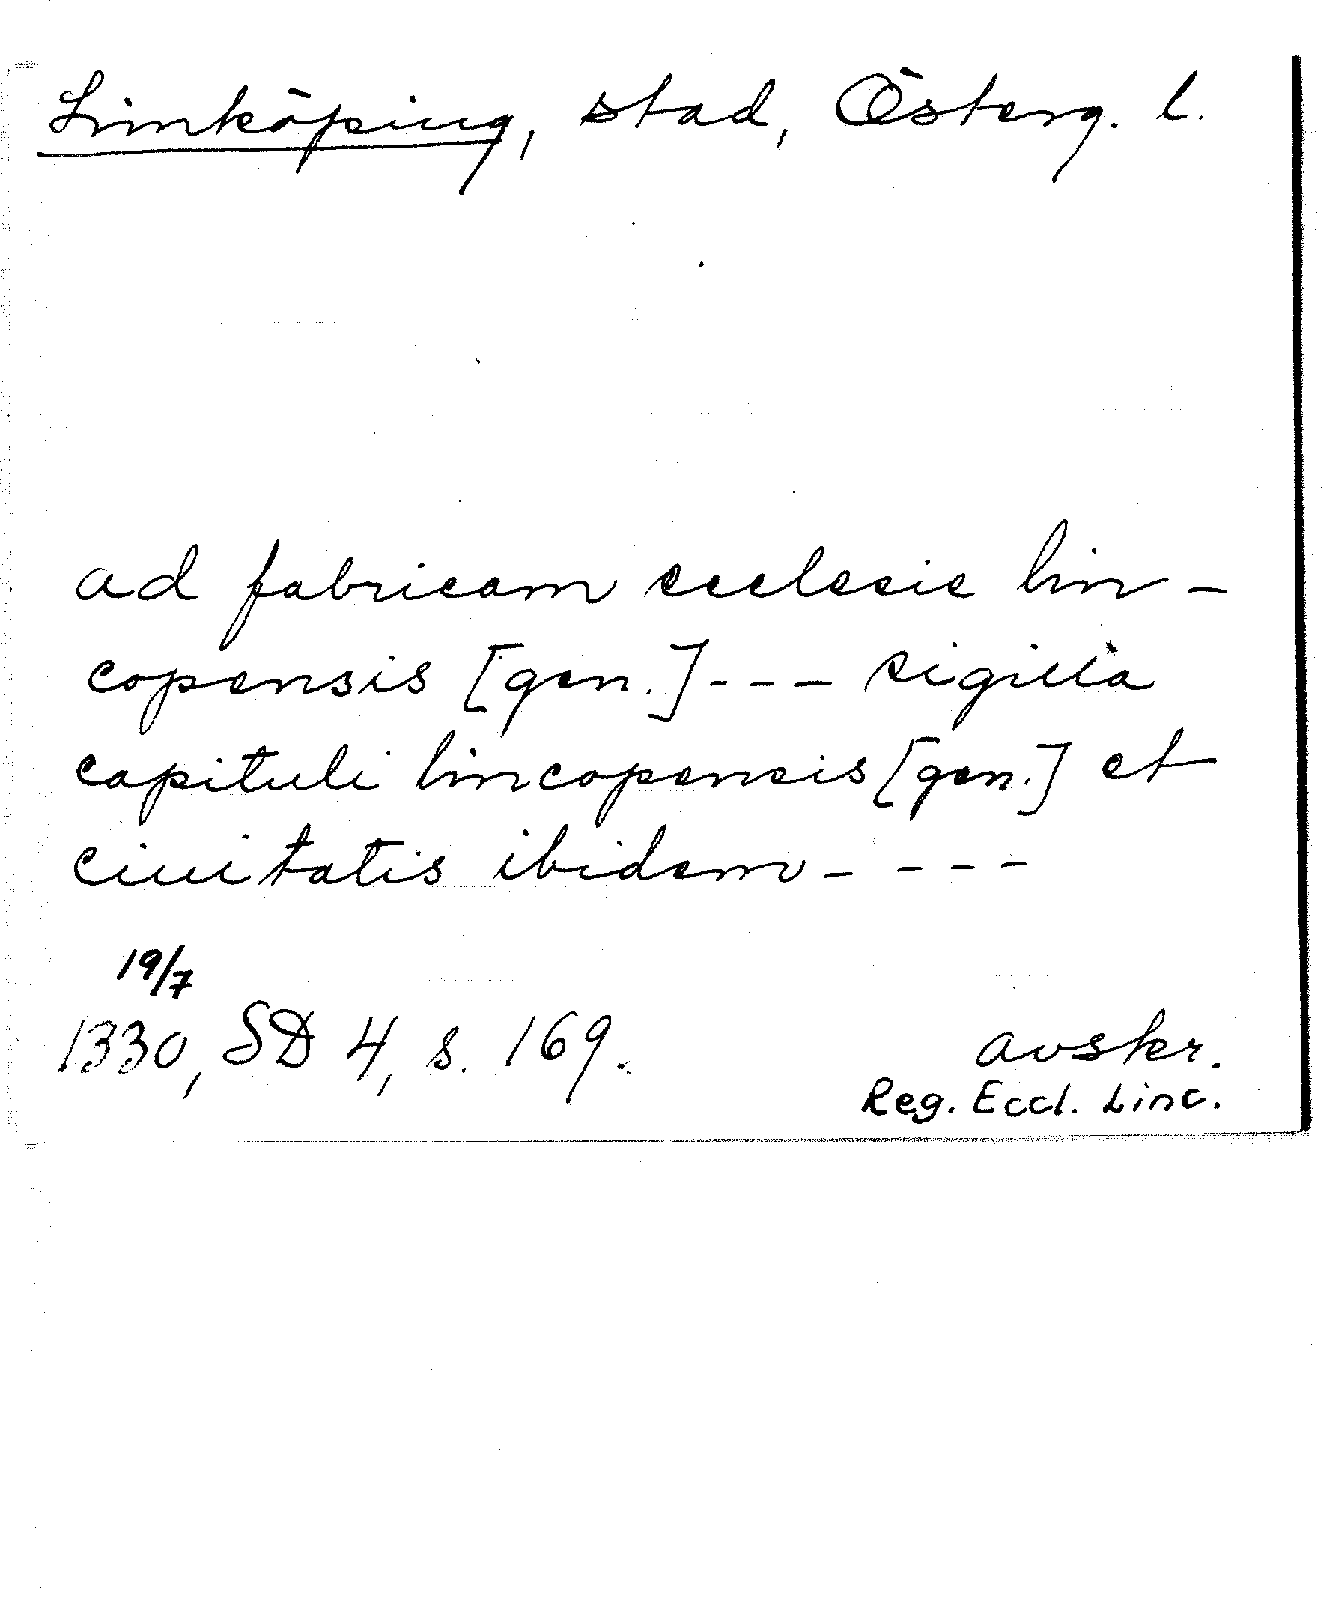 Linköping, stad, Österg. l.
ad fabricam ecclesie lin-
copensis [gen.]--- sigilla
capituli lincopensis [gen.] et
ciuitatis ibidem----
19/7
1330, SD 4, s. 169.
avskr.
Reg. Eccl. Linc.